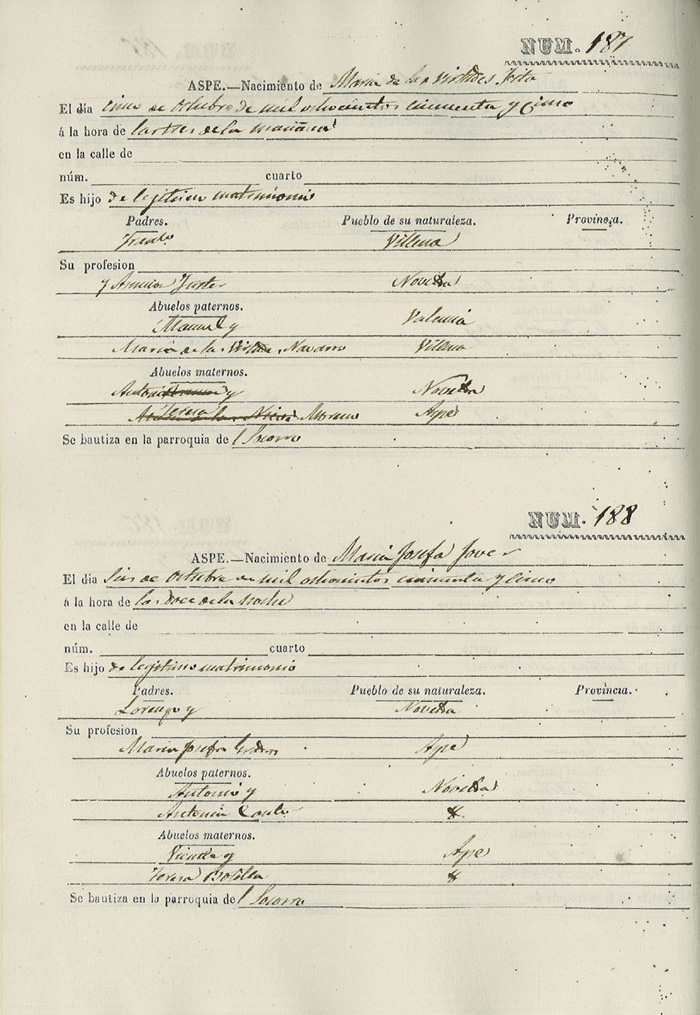 NUM. 187
ASPE.—Nacimiento de Maria de las Virtudes
El dia cinco de Octubre de mil ochocientos cincuenta y cinco
á la hora de las tres de la mañana
en la calle de
núm. cuarto
Es hijo de legitimo matrimonio
Padres. Pueblo de su naturaleza. Provincia.
Villena
Su profesion
y Novelda
Abuelos paternos.
Manuel y Valencia
Maria de la Virtud Navarro Villena
Abuelos maternos.
Antonio y Novelda
Aspe
Se bautiza en la parroquia de l Socorro
NUM. 188
ASPE.—Nacimiento de Maria Josefa Jover
El dia seis de Octubre de mil ochocientos cincuenta y cinco
á la hora de las doce de la noche
en la calle de
núm. cuarto
Es hijo de legitimo matrimonio
Padres. Pueblo de su naturaleza. Provincia.
Lorenzo y Novelda
Su profesion
Maria Josefa Aspe
Abuelos paternos.
Antonio y Novelda
Antonia
Abuelos maternos.
Vicente y Aspe
Teresa
Se bautiza en la parroquia de l Socorro